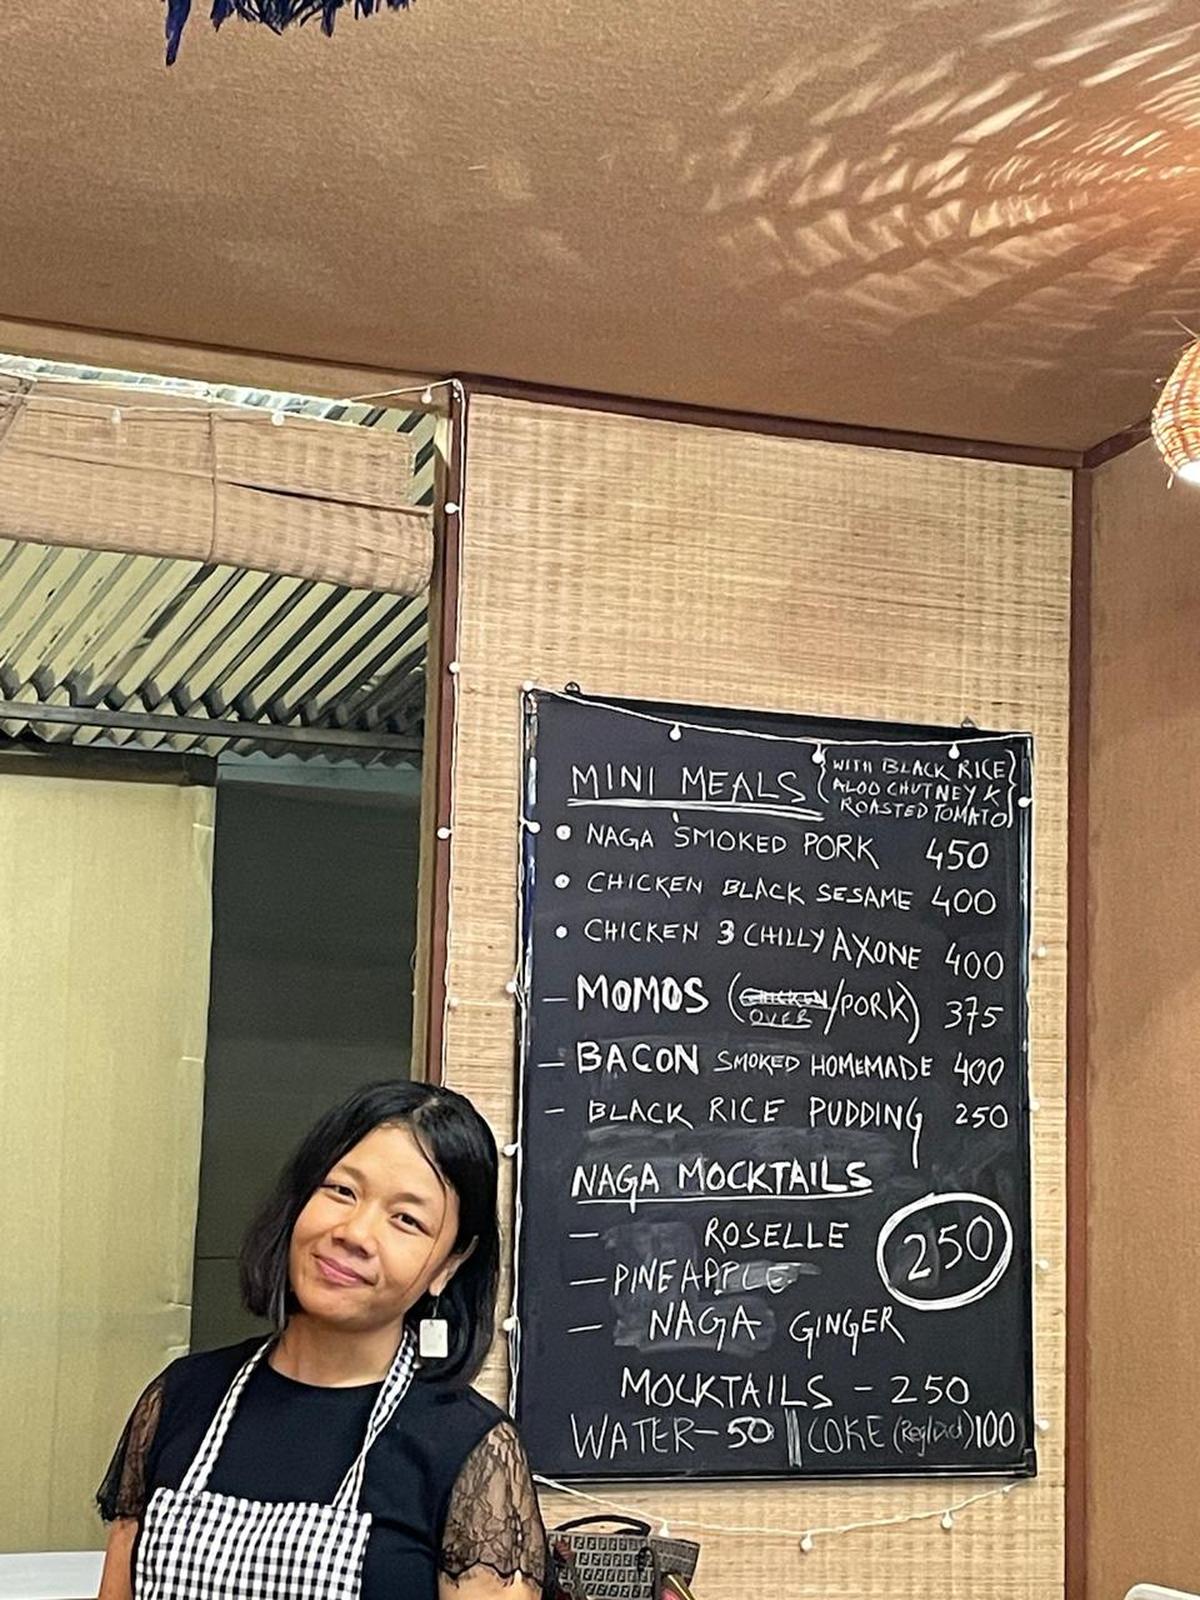 MINI MEALS {WITH BLACK RICE
ALOO CHUTNEY &
ROASTED TOMATO}
NAGA SMOKED PORK 450
CHICKEN BLACK SESAME 400
CHICKEN 3 CHILLY AXONE 400
— MOMOS (CHICKEN/PORK) 375
OVER
— BACON SMOKED HOMEMADE 400
— BLACK RICE PUDDING 250
NAGA MOCKTAILS
— ROSELLE 250
— PINEAPPLE
— NAGA GINGER
MOCKTAILS - 250
WATER - 50 || COKE (Reg/Diet) 100